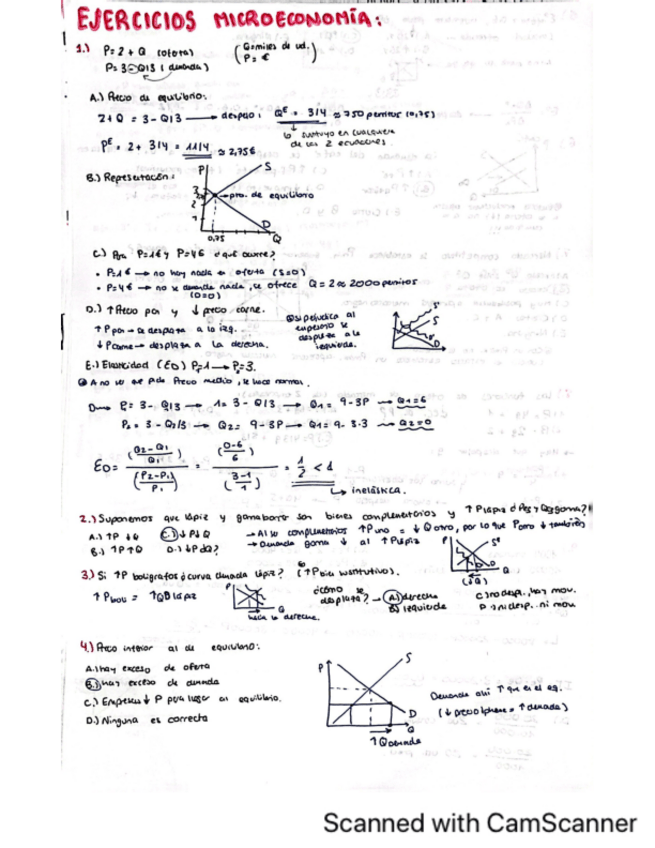 EJERCICIOS MICROECONOMÍA:
1.) P=2+Q (oferta) (Q=miles de ud. P= €)
P=3-Q/3 (demanda)
A.) Precio de equilibrio:
2+Q = 3-Q/3 → despejo: Qᴱ = 3/4 ≈ 750 perritos (0,75)
lo sustituyo en cualquiera de las 2 ecuaciones.
Pᴱ = 2 + 3/4 = 11/4 ≈ 2,75€
B.) Representación:
P S
3
2
1
pto. de equilibrio
0,75 D Q
C.) Para P=1€ y P=4€ ¿qué ocurre?
• P=1€ → no hay nada de oferta (S=0)
• P=4€ → no se demanda nada, se ofrece Q=2 ≈ 2000 perritos
(D=0)
D.) ↑Precio pan y ↓ precio carne.
↑Ppan → desplaza a la izq.
↓Pcarne → desplaza a la derecha.
si perjudica al empresario se desplaza a la izquierda.
S' S D
E.) Elasticidad (ED) P=1 → P=3.
A no ser que pida Precio medio, se hace normal.
D → P₁ = 3 - Q/3 → 1 = 3 - Q/3 → Q1 = 9 - 3P → Q1=6
P₂ = 3 - Q2/3 → Q2 = 9 - 3P → Q1 = 9 - 3·3 → Q2=0
ED = ((Q2-Q1)/Q1) / ((P2-P1)/P1) = ((0-6)/6) / ((3-1)/1) = 1/2 < 1
↳ inelástica.
2.) Suponemos que lápiz y goma borrar son bienes complementarios y ↑Plápiz ¿Pes y Qes goma?
A.) ↑P ↓Q C.) ↓P↓Q
B.) ↑P↑Q D.) ↓P ¿Q?
→ Al ser complementarios ↑P uno = ↓Q otro, por lo que P otro ↓ también
→ Demanda goma ↓ al ↑Plápiz
P S D Q
(↓Q)
3.) Si ↑P bolígrafos ¿curva demanda lápiz? (↑P bien sustitutivo).
↑Pboli = ↑QD lápiz
P Q
hacia la derecha.
¿cómo se desplaza? → A) derecha
B) izquierda
C) no desp., hay mov.
D) ni desp. ni mov
4.) Precio inferior al de equilibrio:
A.) hay exceso de oferta
B.) hay exceso de demanda
C.) Empresas ↓ P para lugar al equilibrio.
D.) Ninguna es correcta
P S D Q
↑Q demanda
Scanned with CamScanner